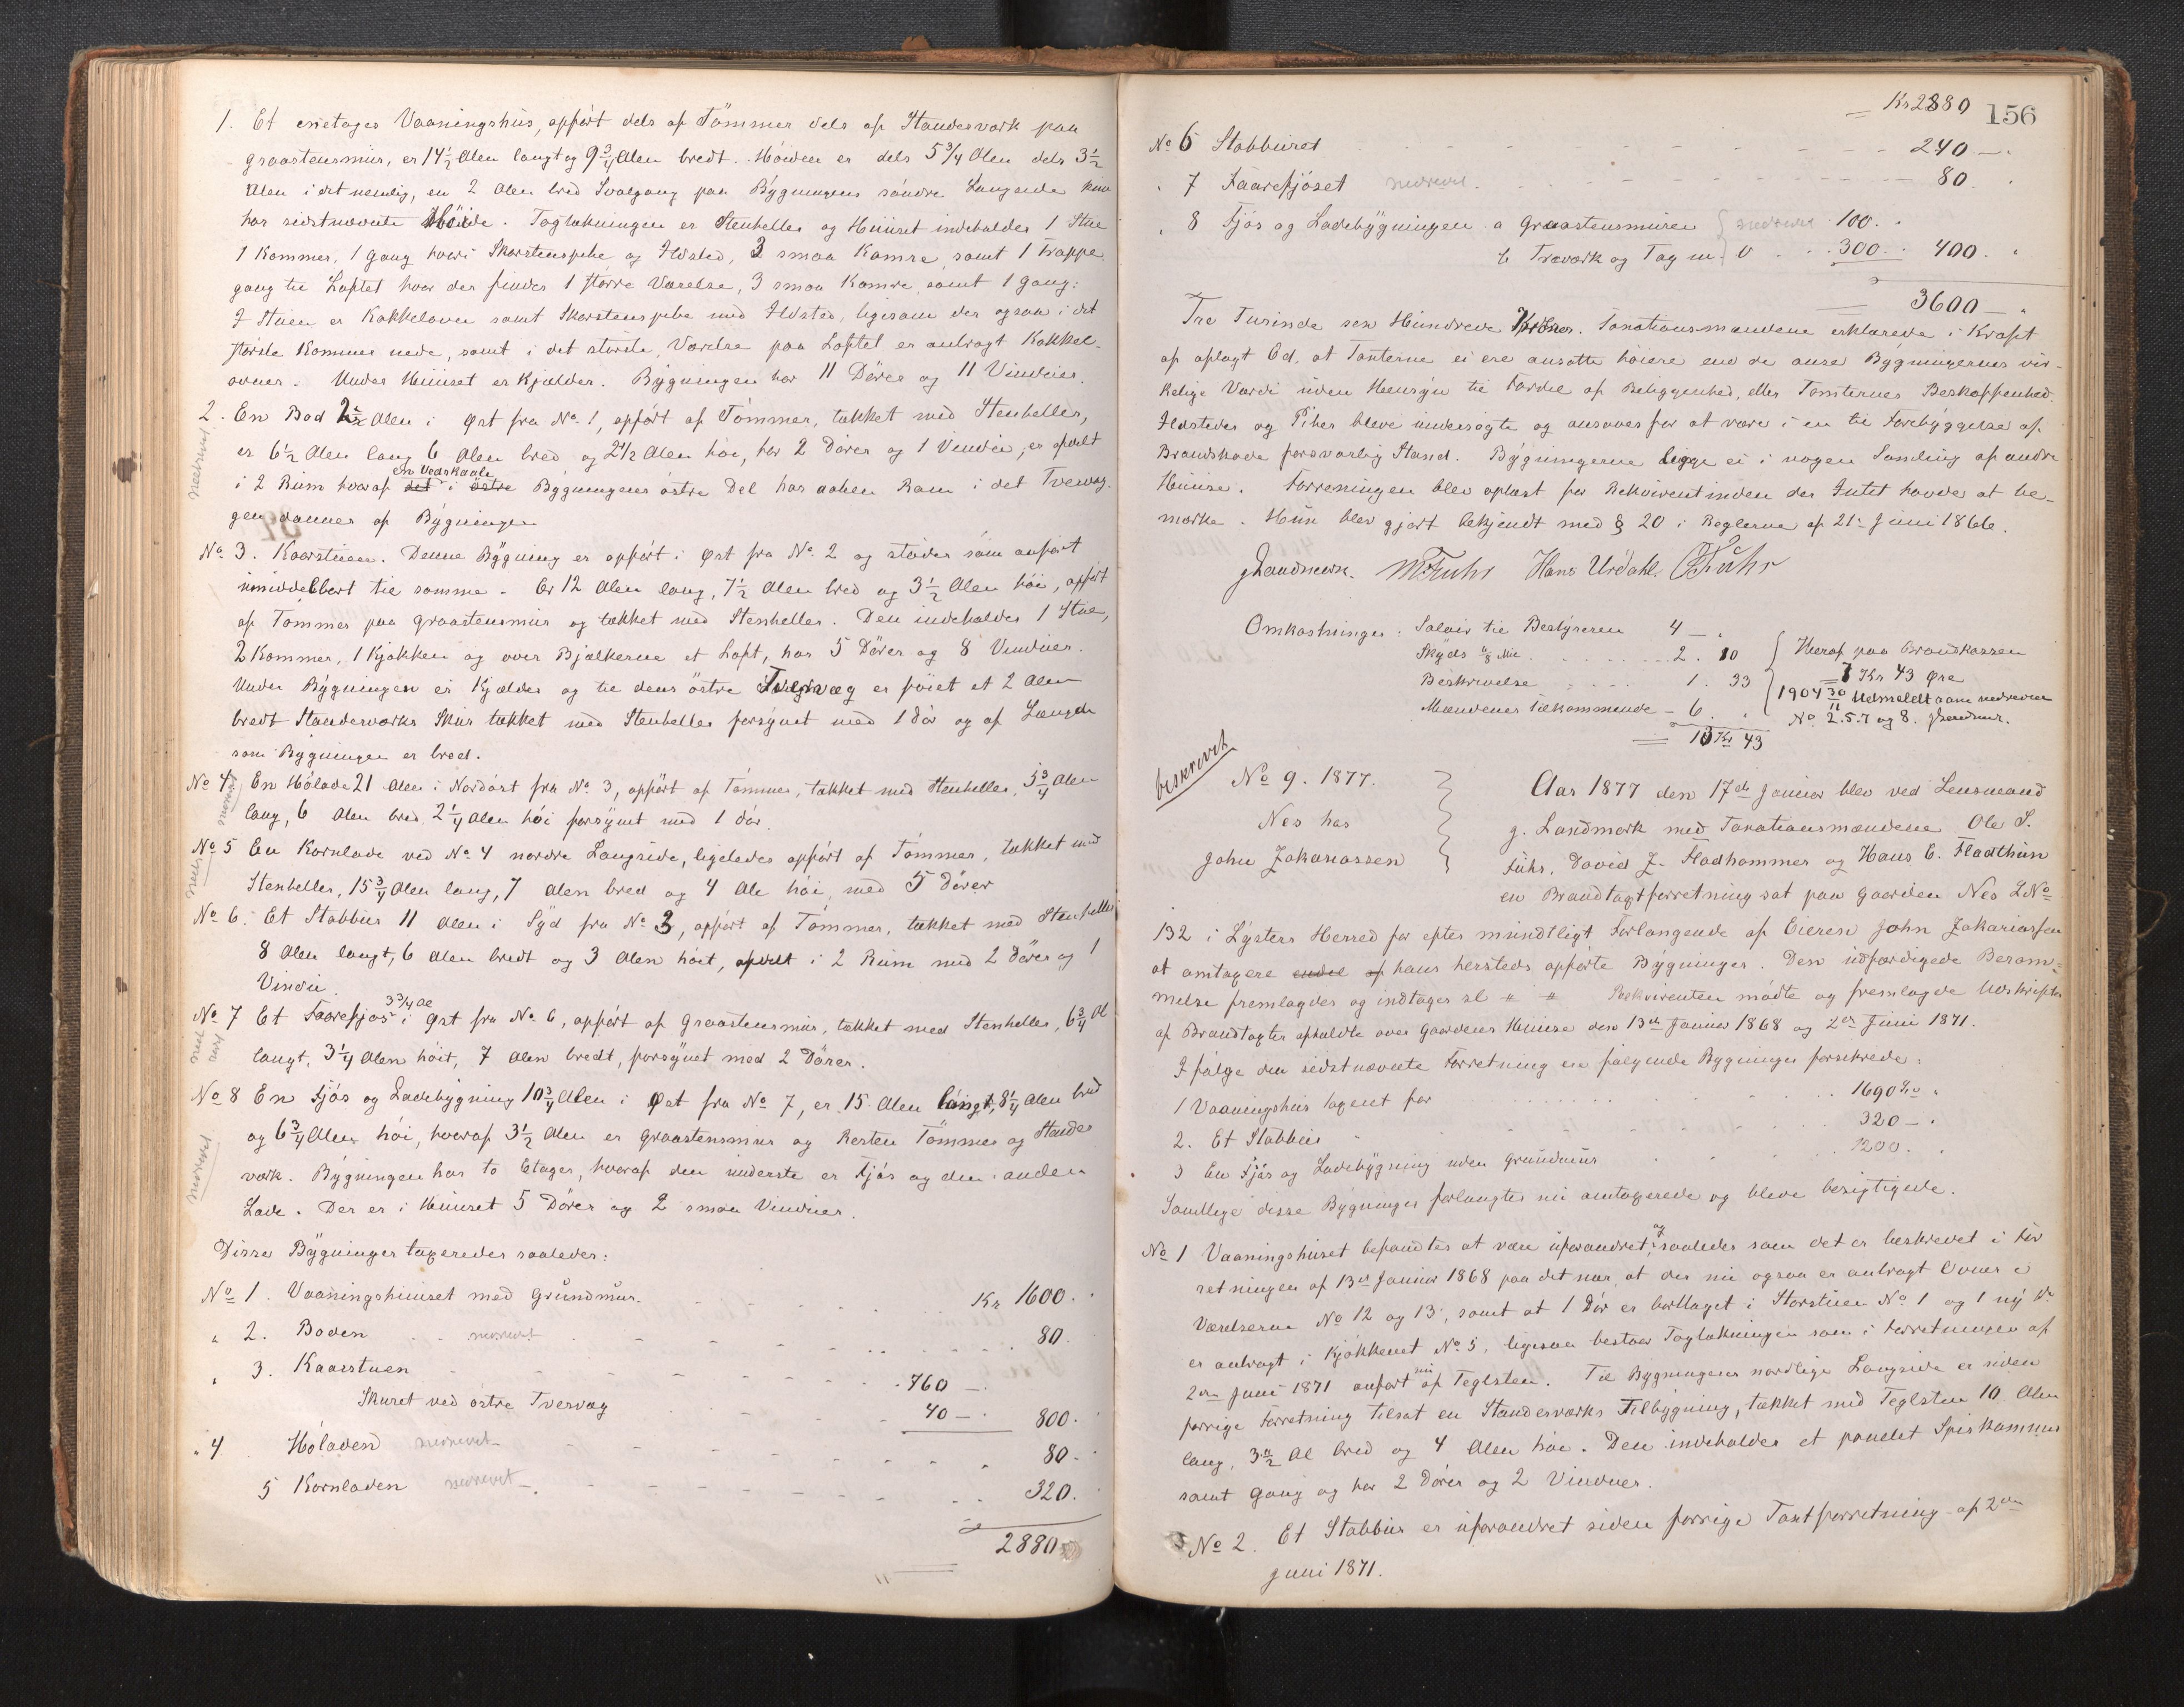 1. Et enetages Vaaningshus, opført dels af Tömmer dels af Standerværk paa
graastensmur, er 14 1/2 Alen langt og 9 3/4 Alen bredt. Höiden er dels 5 3/4 Alen dels 3 1/2
Alen i det nemlig, en 2 Alen bred Svalgang paa Bygningens søndre Langside kun
har sidstnævnte Höide. Taglækningen er Stenheller og Huuset indeholder 1 Stue
1 Kammer, 1 Gang hvori Skorstenspibe og Ildsted, 3 smaa Kamre samt 1 Trappe
gang til Loftet hvor der findes 1 større Værelse, 3 smaa Kamre samt 1 Gang:
I Stuen er Kakkelovn samt Skorstenspibe med Ildsted, ligesom der ogsaa i det
største Kammer nede, samt i det største Værelse paa Loftet er anbragt Kakkel-
ovner. Under Huuset er Kjælder. Bygningen har 11 Dører og 11 Vinduer.
2. En Bod 2 1/2 Alen i Øst fra No. 1, opført af Tömmer, tækket med Stenheller,
nedrevet
er 6 1/2 Alen lang 6 Alen bred og 2 1/2 Alen høi, har 2 Dører og 1 Vindue, er afdelt
en Vedskaale
i 2 Rum hvoraf det i östre Bygningens østre Del har aaben Ram i det Tvervæg-
gen dannes af Bygningen
No. 3. Kaarstuen. Denne Bygning er opført i Øst fra No. 2 og støder som anført
umiddelbart til samme. Er 12 Alen lang, 7 1/2 Alen bred og 3 1/2 Alen høi, opført
af Tømmer paa Graastensmur og tækket med Stenheller. Den indeholder 1 Stue,
2 Kammer, 1 Kjøkken og over Bjælkerne et Loft, har 5 Dører og 8 Vinduer.
Under Bygningen er Kjælder og til dens östre Tvervæg er føiet et 2 Alen
bredt Standerværks Skur tækket med Stenheller forsynet med 1 Dør og af Længde
som Bygningen er bred.
No 4. En Hølade 21 Alen i Nordöst fra No. 3, opført af Tömmer, tækket med Stenheller, 5 3/4 Alen
lang, 6 Alen bred 2 1/4 Alen høi forsynet med 1 dør.
No. 5 En Kornlade ved No. 4 nordre Langside, ligeledes opført af Tømmer, tækket med
Stenheller, 15 3/4 Alen lang, 7 Alen bred og 4 Ale høi, med 5 Dører
No. 6. Et Stabbur 11 Alen i Syd fra No. 3, opført af Tømmer, tækket med Stenheller
8 Alen langt, 6 Alen bredt og 3 Alen høit, afdelt i 2 Rum med 2 Dører og 1
Vindu.
3 3/4 Al
No. 7 Et Faarefjøs i Øst fra No. 6, opført af Graastensmur, tækket med Stenheller, 6 3/4 Al
langt, 3 1/4 Alen høit, 7 Alen bredt, forsynet med 2 Dører.
No 8 En Fjøs og Ladebygning 10 3/4 Alen i Øst fra No. 7, er 15 Alen langt, 8 1/4 Alen bred
og 6 3/4 Alen høi, hvoraf 3 1/2 Alen er Graastensmur og Resten Tømmer og Stander
nedrevet
værk. Bygningen har to Etager, hvoraf den underste er Fjøs og den anden
Lade. Der er i Huuset 5 Dører og 2 smaa Vinduer.
Disse Bygninger taxeredes saaledes:
No. 1. Vaaningshuuset med Grundmur. Kr 1600.
" 2. Boden nedrevet 80.
" 3. Kaarstuen 760 —
Skuret ved østre Tvervæg 40 — 800.
" 4 Høladen nedrevet 80.
5 Kornladen nedrevet 320.
2880
Kr 2880 156
No. 6 Stabburet 240 —
" 7 Faarefjøset nedrevet 80.
" 8 Fjøs og Ladebygningen a Graastensmuren nedrevet 100.
b Træværk og Tag m. v 300. 400.
3600 —
Tre Tusinde sex Hundrede Kroner. Taxationsmændene erklærede i Kraft
af aflagt Ed. at Taxterne ei ere ansatte høiere end de anse Bygningernes vir-
kelige Værdi uden Hensyn til Fordel af Beliggenhed, eller Tomternes Beskaffenhed.
Ildsteder og Piber bleve undersøgte og ansaaes for at være i en til Forebyggelse af
Brandskade forsvarlig Stand. Bygningerne ligge ei i nogen Samling af andre
Huuse. Forretningen blev oplæst for Rekvirentinden der Intet havde at be-
mærke. Hun blev gjort bekjendt med § 20 i Reglerne af 21. Juni 1866.
GLandmark. MFuhr Hans Urdahl. OFuhr
Omkostninger: Salair til Bestyreren 4 —
Skyds Mil 2. 10
Beskrivelse 1. 33
Mændenes tilkommende 6
13 Kr 43
Heraf paa Brandkassen
7 Kr 43 Øre
1904 30/11 Udmeldt som nedrevne
No. 2. 5. 7 og 8.
beskrevet
No 9. 1877.
Nes hos
John Zakariassen
Aar 1877 den 17de Januar blev ved Lensmand
G. Landmark med Taxationsmændene Ole S.
Fuhr, David J. Fladhammer og Hans E. Fladthun
en Brandtaxtforretning sat paa Gaarden Nes LNo
132 i Lysters Herred for efter mundtligt Forlangende af Eieren John Zakariassen
at omtaxere endel af hans hersteds opførte Bygninger. Den udfærdigede Beram-
melse fremlagdes og indtages sl " " Rekvirenten mødte og fremlagde Udskrifter
af Brandtaxter afholdte over Gaardens Huuse den 13de Januar 1868 og 2den Juni 1871.
I følge den sidstnævnte Forretning ere følgende Bygninger forsikrede:
1 Vaaningshuus taxeret for 1690 Kr
2. Et Stabbur 320 —
3 En Fjøs og Ladebygning uden Grundmur 1200.
Samtlige disse Bygninger forlangtes nu omtaxerede og bleve besigtigede.
No. 1 Vaaningshuset befandtes at være uforandret, og saaledes som det er beskrevet i For
retningen af 13de Januar 1868 paa det nær, at der nu ogsaa er anbragt Ovner i
Værelserne No 12 og 13, samt at 1 Dør er borttaget i Storstuen No. 1 og 1 ny do
er anbragt i Kjøkkenet No. 5, ligesaa bestaar Taglækningen som i Forretningen af
2den Juni 1871 anført nu af Teglsten. Til Bygningens nordlige Langside er siden
forrige Forretning tilsat en Standerværks Tilbygning, tækket med Teglsten 10 Alen
lang, 3 1/2 Al bred og 4 Alen høi. Den indeholder et panelet Spiskammer
samt Gang og har 2 Dører og 2 Vinduer.
No 2. Et Stabbur er uforandret siden forrige Taxtforretning af 2den
Juni 1871.